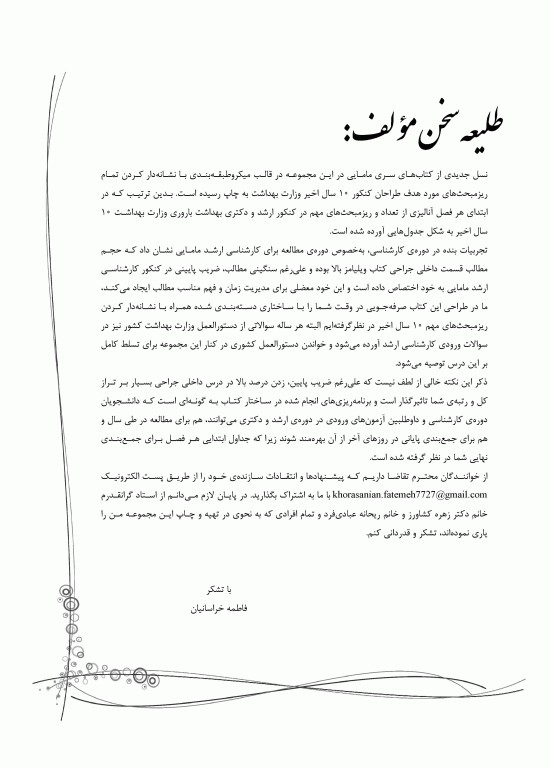 طلیعه سخن مؤلف:
نسل جدیدی از کتاب‌های سری مامایی در این مجموعه در قالب میکروطبقه‌بندی با نشانه‌دار کردن تمام
ریزمبحث‌های مورد هدف طراحان کنکور ۱۰ سال اخیر وزارت بهداشت به چاپ رسیده است. بدین ترتیب که در
ابتدای هر فصل آنالیزی از تعداد و ریزمبحث‌های مهم در کنکور ارشد و دکتری بهداشت باروری وزارت بهداشت ۱۰
سال اخیر به شکل جدول‌هایی آورده شده است.
تجربیات بنده در دوره‌ی کارشناسی، به‌خصوص دوره‌ی مطالعه برای کارشناسی ارشد مامایی نشان داد که حجم
مطالب قسمت داخلی جراحی کتاب ویلیامز بالا بوده و علی‌رغم سنگینی مطالب، ضریب پایینی در کنکور کارشناسی
ارشد مامایی به خود اختصاص داده است و این خود معضلی برای مدیریت زمان و فهم مناسب مطالب ایجاد می‌کند،
ما در طراحی این کتاب صرفه‌جویی در وقت شما را با ساختاری دسته‌بندی شده همراه با نشانه‌دار کردن
ریزمبحث‌های مهم ۱۰ سال اخیر در نظرگرفته‌ایم البته هر ساله سوالاتی از دستورالعمل وزارت بهداشت کشور نیز در
سوالات ورودی کارشناسی ارشد آورده می‌شود و خواندن دستورالعمل کشوری در کنار این مجموعه برای تسلط کامل
بر این درس توصیه می‌شود.
ذکر این نکته خالی از لطف نیست که علی‌رغم ضریب پایین، زدن درصد بالا در درس داخلی جراحی بسیار بر تراز
کل و رتبه‌ی شما تاثیرگذار است و برنامه‌ریزی‌های انجام شده در ساختار کتاب به گونه‌ای است که دانشجویان
دوره‌ی کارشناسی و داوطلبین آزمون‌های ورودی در دوره‌ی ارشد و دکتری می‌توانند، هم برای مطالعه در طی سال و
هم برای جمع‌بندی پایانی در روزهای آخر از آن بهره‌مند شوند زیرا که جداول ابتدایی هر فصل برای جمع‌بندی
نهایی شما در نظر گرفته شده است.
از خوانندگان محترم تقاضا داریم که پیشنهادها و انتقادات سازنده‌ی خود را از طریق پست الکترونیک
khorasanian.fatemeh7727@gmail.com با ما به اشتراک بگذارید. در پایان لازم می‌دانم از استاد گرانقدرم
خانم دکتر زهره کشاورز و خانم ریحانه عبادی‌فرد و تمام افرادی که به نحوی در تهیه و چاپ این مجموعه من را
یاری نموده‌اند، تشکر و قدردانی کنم.
با تشکر
فاطمه خراسانیان